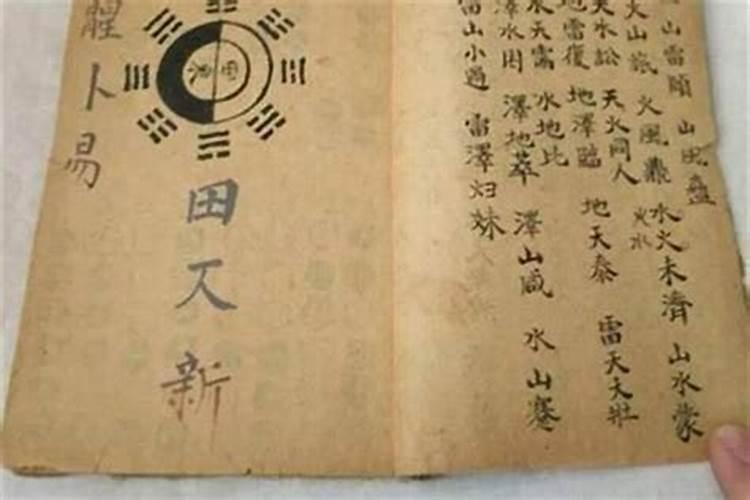 山雷頤 山風蠱 水火未濟 山水蒙
火水
火山旅 火風鼎
天水訟 天火同人
地雷復 地澤臨 地天泰 雷天大壯
水天需 水地比
澤水困 澤地萃 澤山咸 水山蹇
雷山小過 雷澤归妹
田 新
卜易